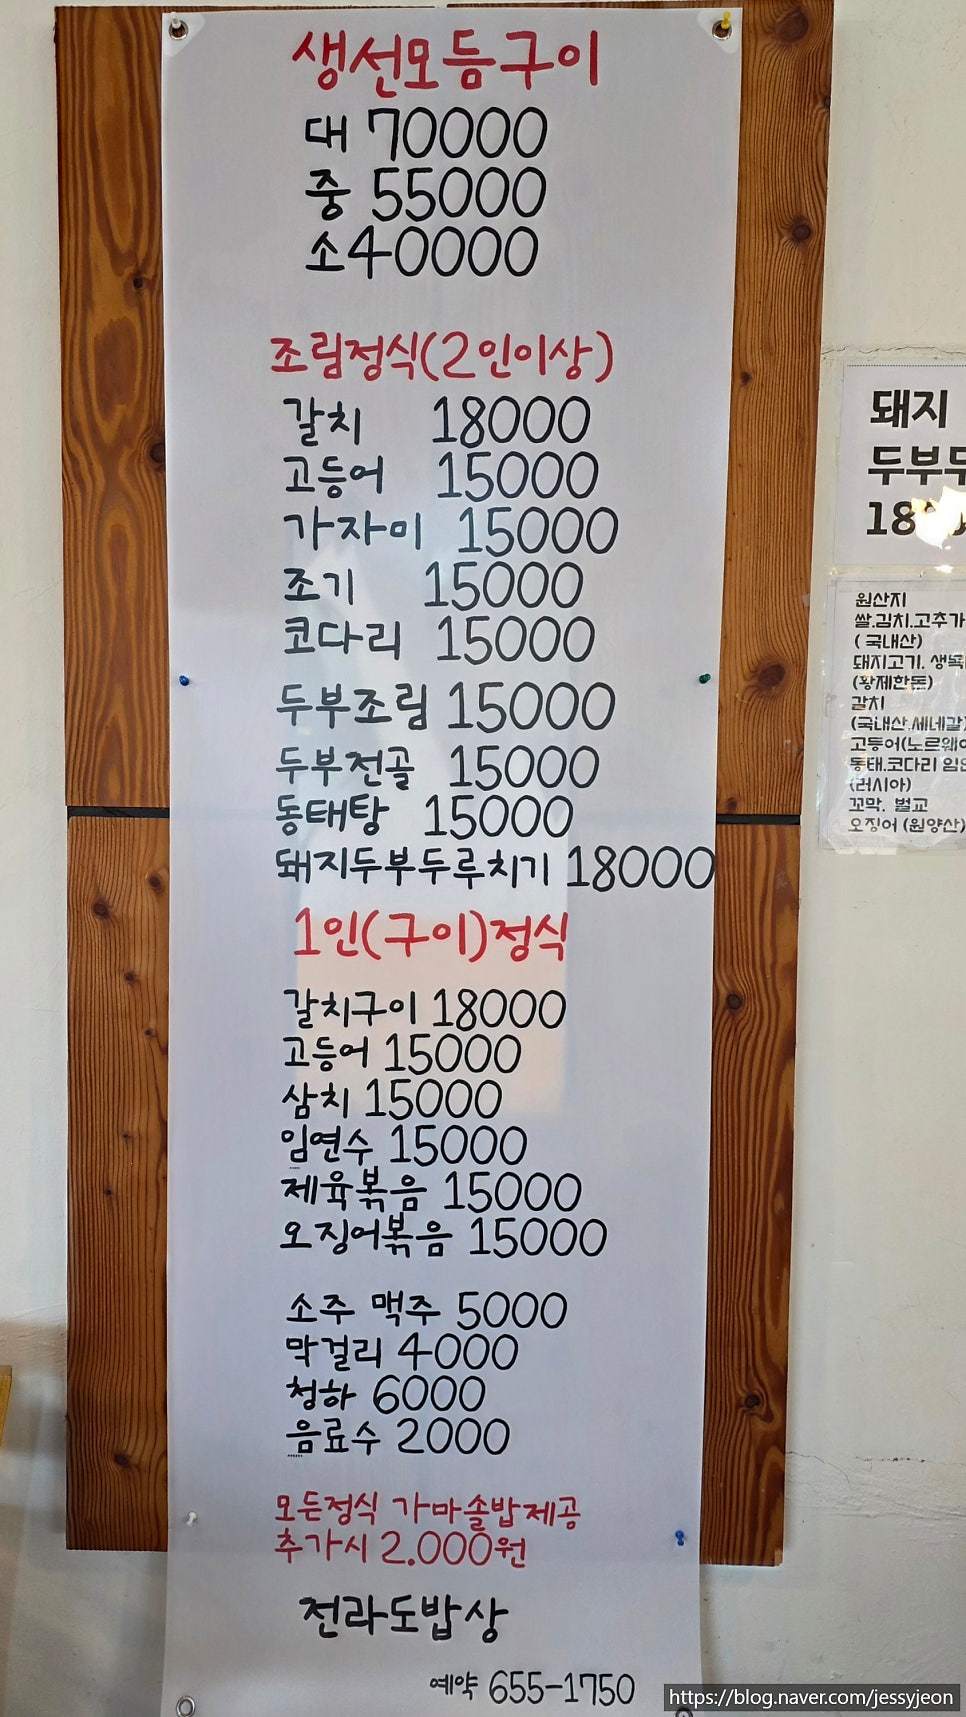 생선모듬구이
대 70000
중 55000
소 40000
조림정식(2인이상)
갈치 18000
고등어 15000
가자미 15000
조기 15000
코다리 15000
두부조림 15000
두부전골 15000
동태탕 15000
돼지두부두루치기 18000
1인(구이)정식
갈치구이 18000
고등어 15000
삼치 15000
임연수 15000
제육볶음 15000
오징어볶음 15000
소주 맥주 5000
막걸리 4000
청하 6000
음료수 2000
모든정식 가마솥밥제공
추가시 2.000원
전라도밥상
예약 655-1750
돼지
두부두
18
원산지
쌀.김치.고추가
(국내산)
돼지고기. 생목
(황제한돈)
갈치
(국내산.세네갈)
고등어(노르웨이
동태.코다리 임연
(러시아)
꼬막. 벌교
오징어 (원양산)
https://blog.naver.com/jessyjeon